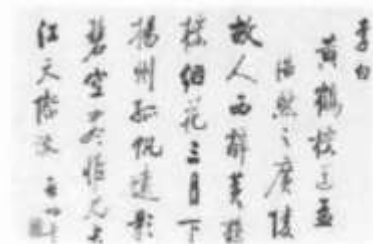 李白
黄鹤楼送孟
浩然之广陵
故人西辞黄鹤
楼烟花三月下
扬州孤帆远影
碧空尽惟见长
江天际流